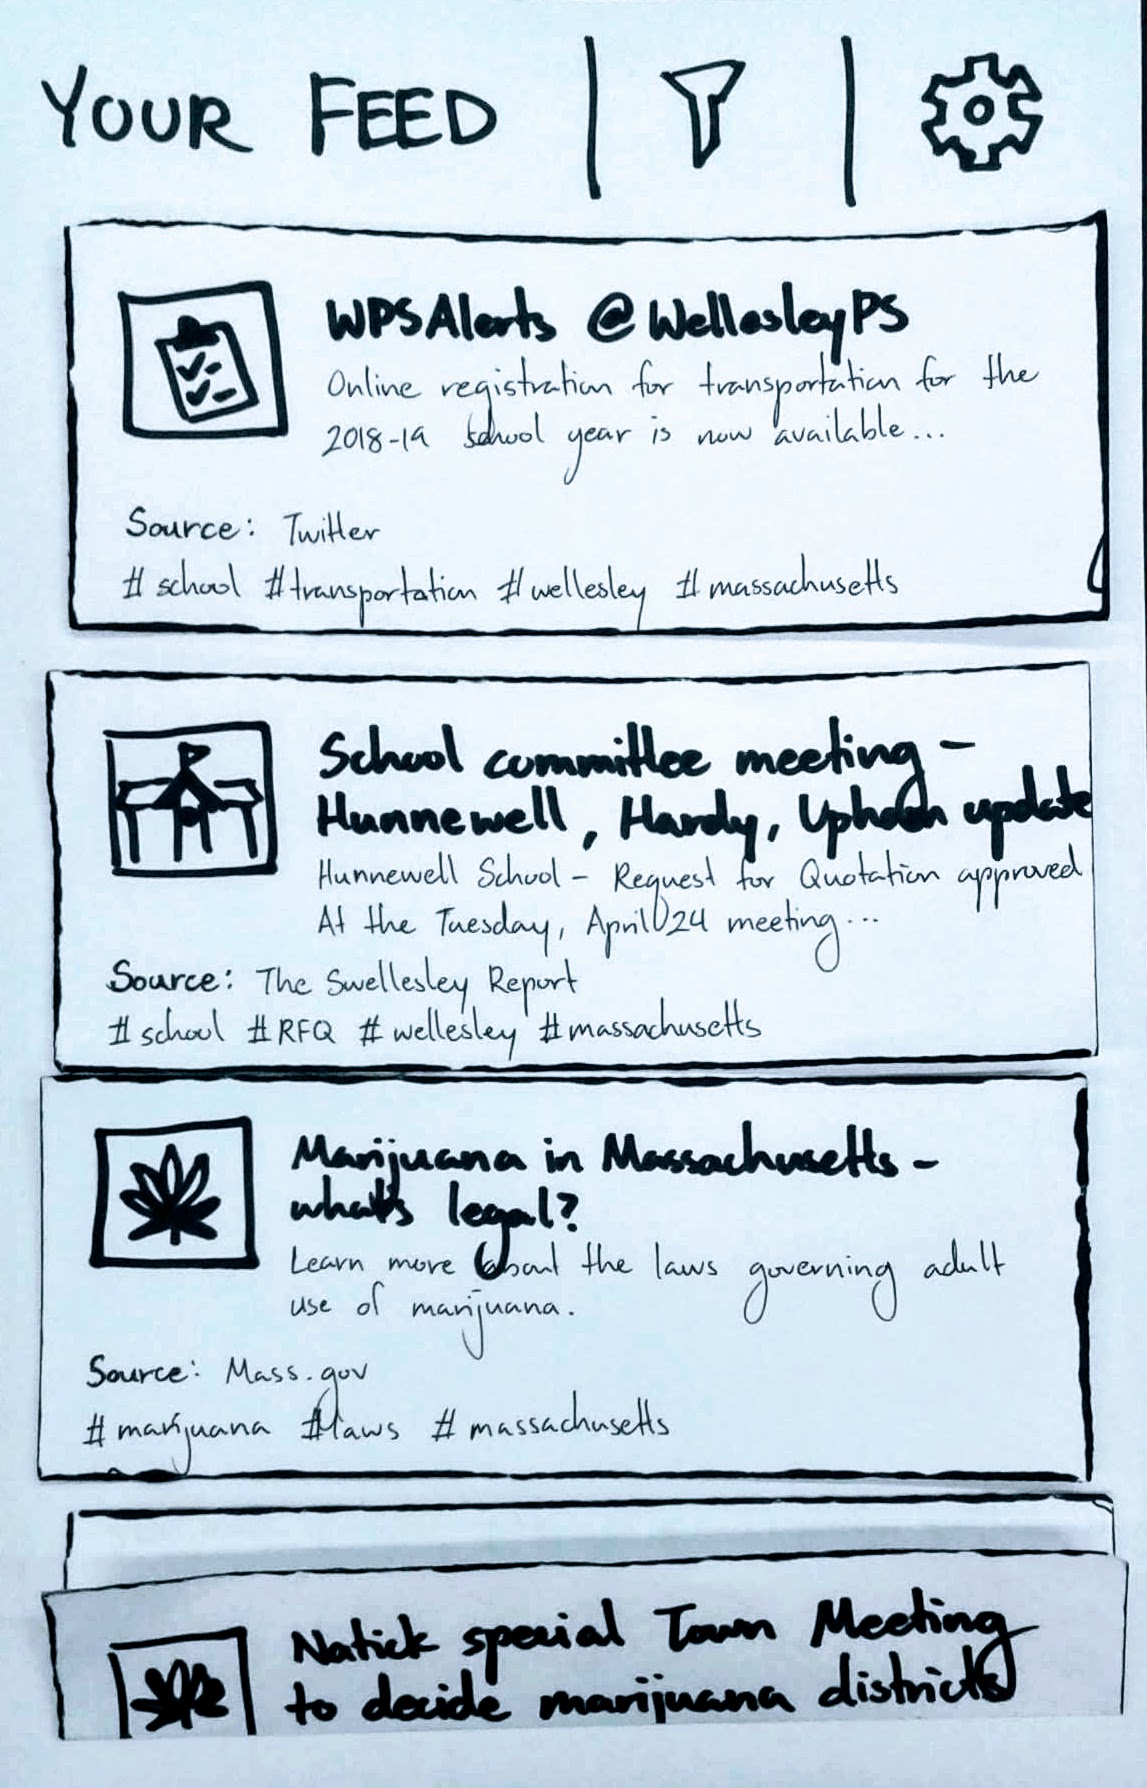 YOUR FEED
WPSAlerts @WellesleyPS
Online registration for transportation for the
2018-19 school year is now available...
Source: Twitter
#school #transportation #wellesley #massachusetts
School committee meeting -
Hunnewell, Hardy, Upham update
Hunnewell School - Request for Quotation approved
At the Tuesday, April 24 meeting...
Source: The Swellesley Report
#school #RFQ #wellesley #massachusetts
Marijuana in Massachusetts -
what's legal?
Learn more about the laws governing adult
use of marijuana.
Source: Mass.gov
#marijuana #laws #massachusetts
Natick special Town Meeting
to decide marijuana districts